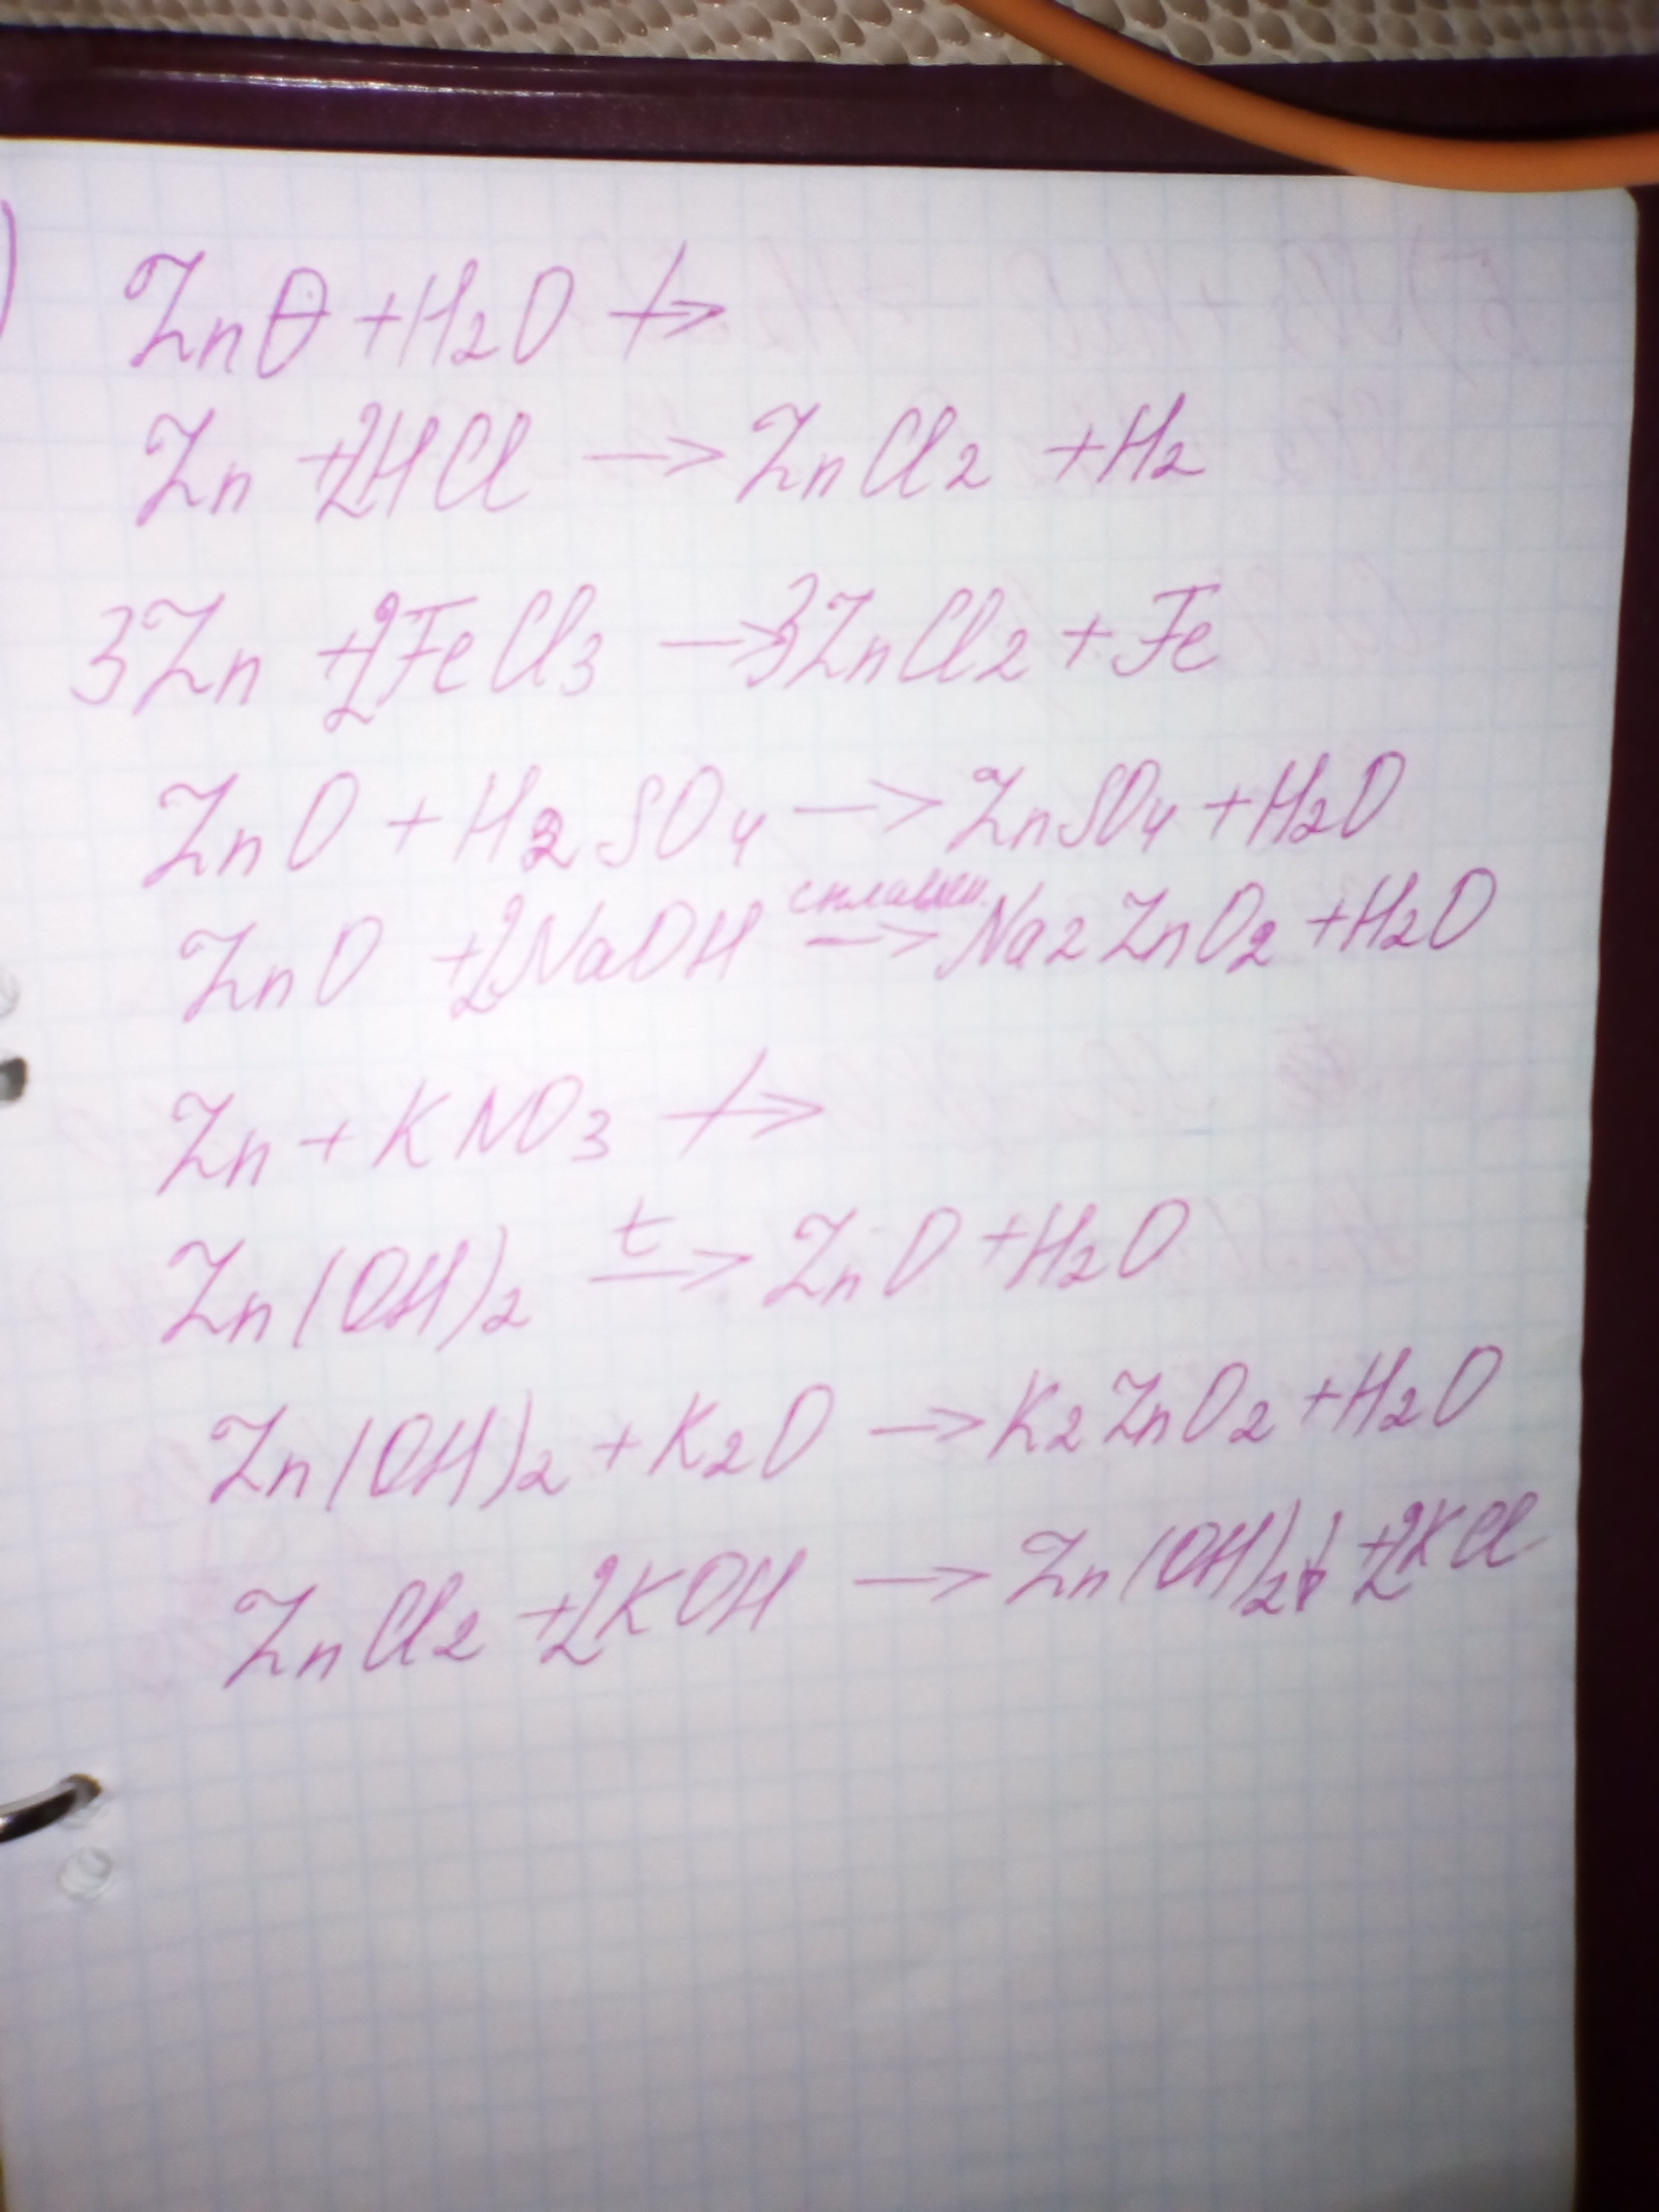 )
ZnO + H2O ↛
Zn + 2HCl → ZnCl2 + H2
3Zn + 2FeCl3 → 3ZnCl2 + Fe
ZnO + H2SO4 → ZnSO4 + H2O
сплавлен.
ZnO + 2NaOH → Na2ZnO2 + H2O
Zn + KNO3 ↛
t
Zn(OH)2 → ZnO + H2O
Zn(OH)2 + K2O → K2ZnO2 + H2O
ZnCl2 + 2KOH → Zn(OH)2↓ + 2KCl